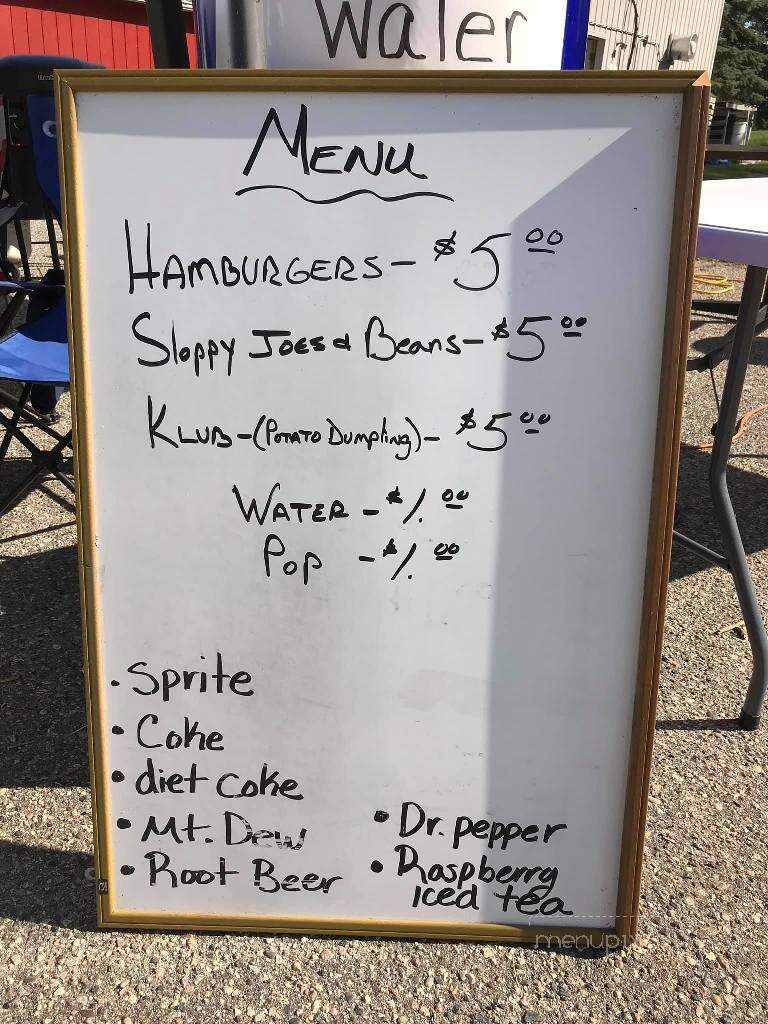 Water
MENU
HAMBURGERS - $5 00
Sloppy JOES & Beans - $5 00
KLUB - (POTATO Dumpling) - $5 00
WATER - $1.00
Pop - $1.00
• Sprite
• Coke
• diet coke
• Mt. Dew
• Root Beer
• Dr. pepper
• Raspberry
iced tea
menupix